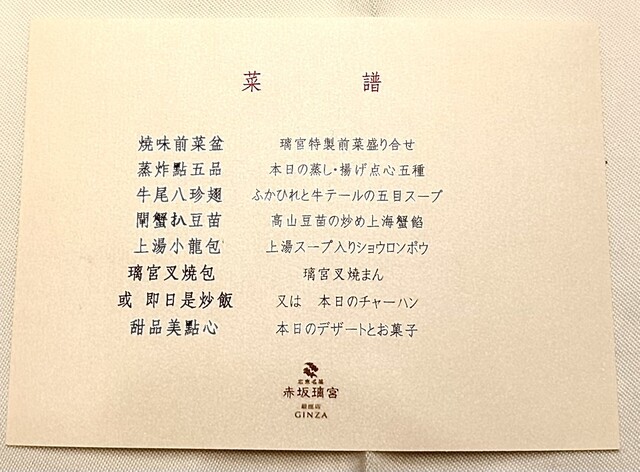 菜 譜
焼味前菜盆 璃宮特製前菜盛り合せ
蒸炸點五品 本日の蒸し・揚げ点心五種
牛尾八珍翅 ふかひれと牛テールの五目スープ
閘蟹扒豆苗 高山豆苗の炒め上海蟹餡
上湯小龍包 上湯スープ入りショウロンポウ
璃宮叉焼包 璃宮叉焼まん
或 即日是炒飯 又は 本日のチャーハン
甜品美點心 本日のデザートとお菓子
広東名菜
赤坂璃宮
銀座店
GINZA